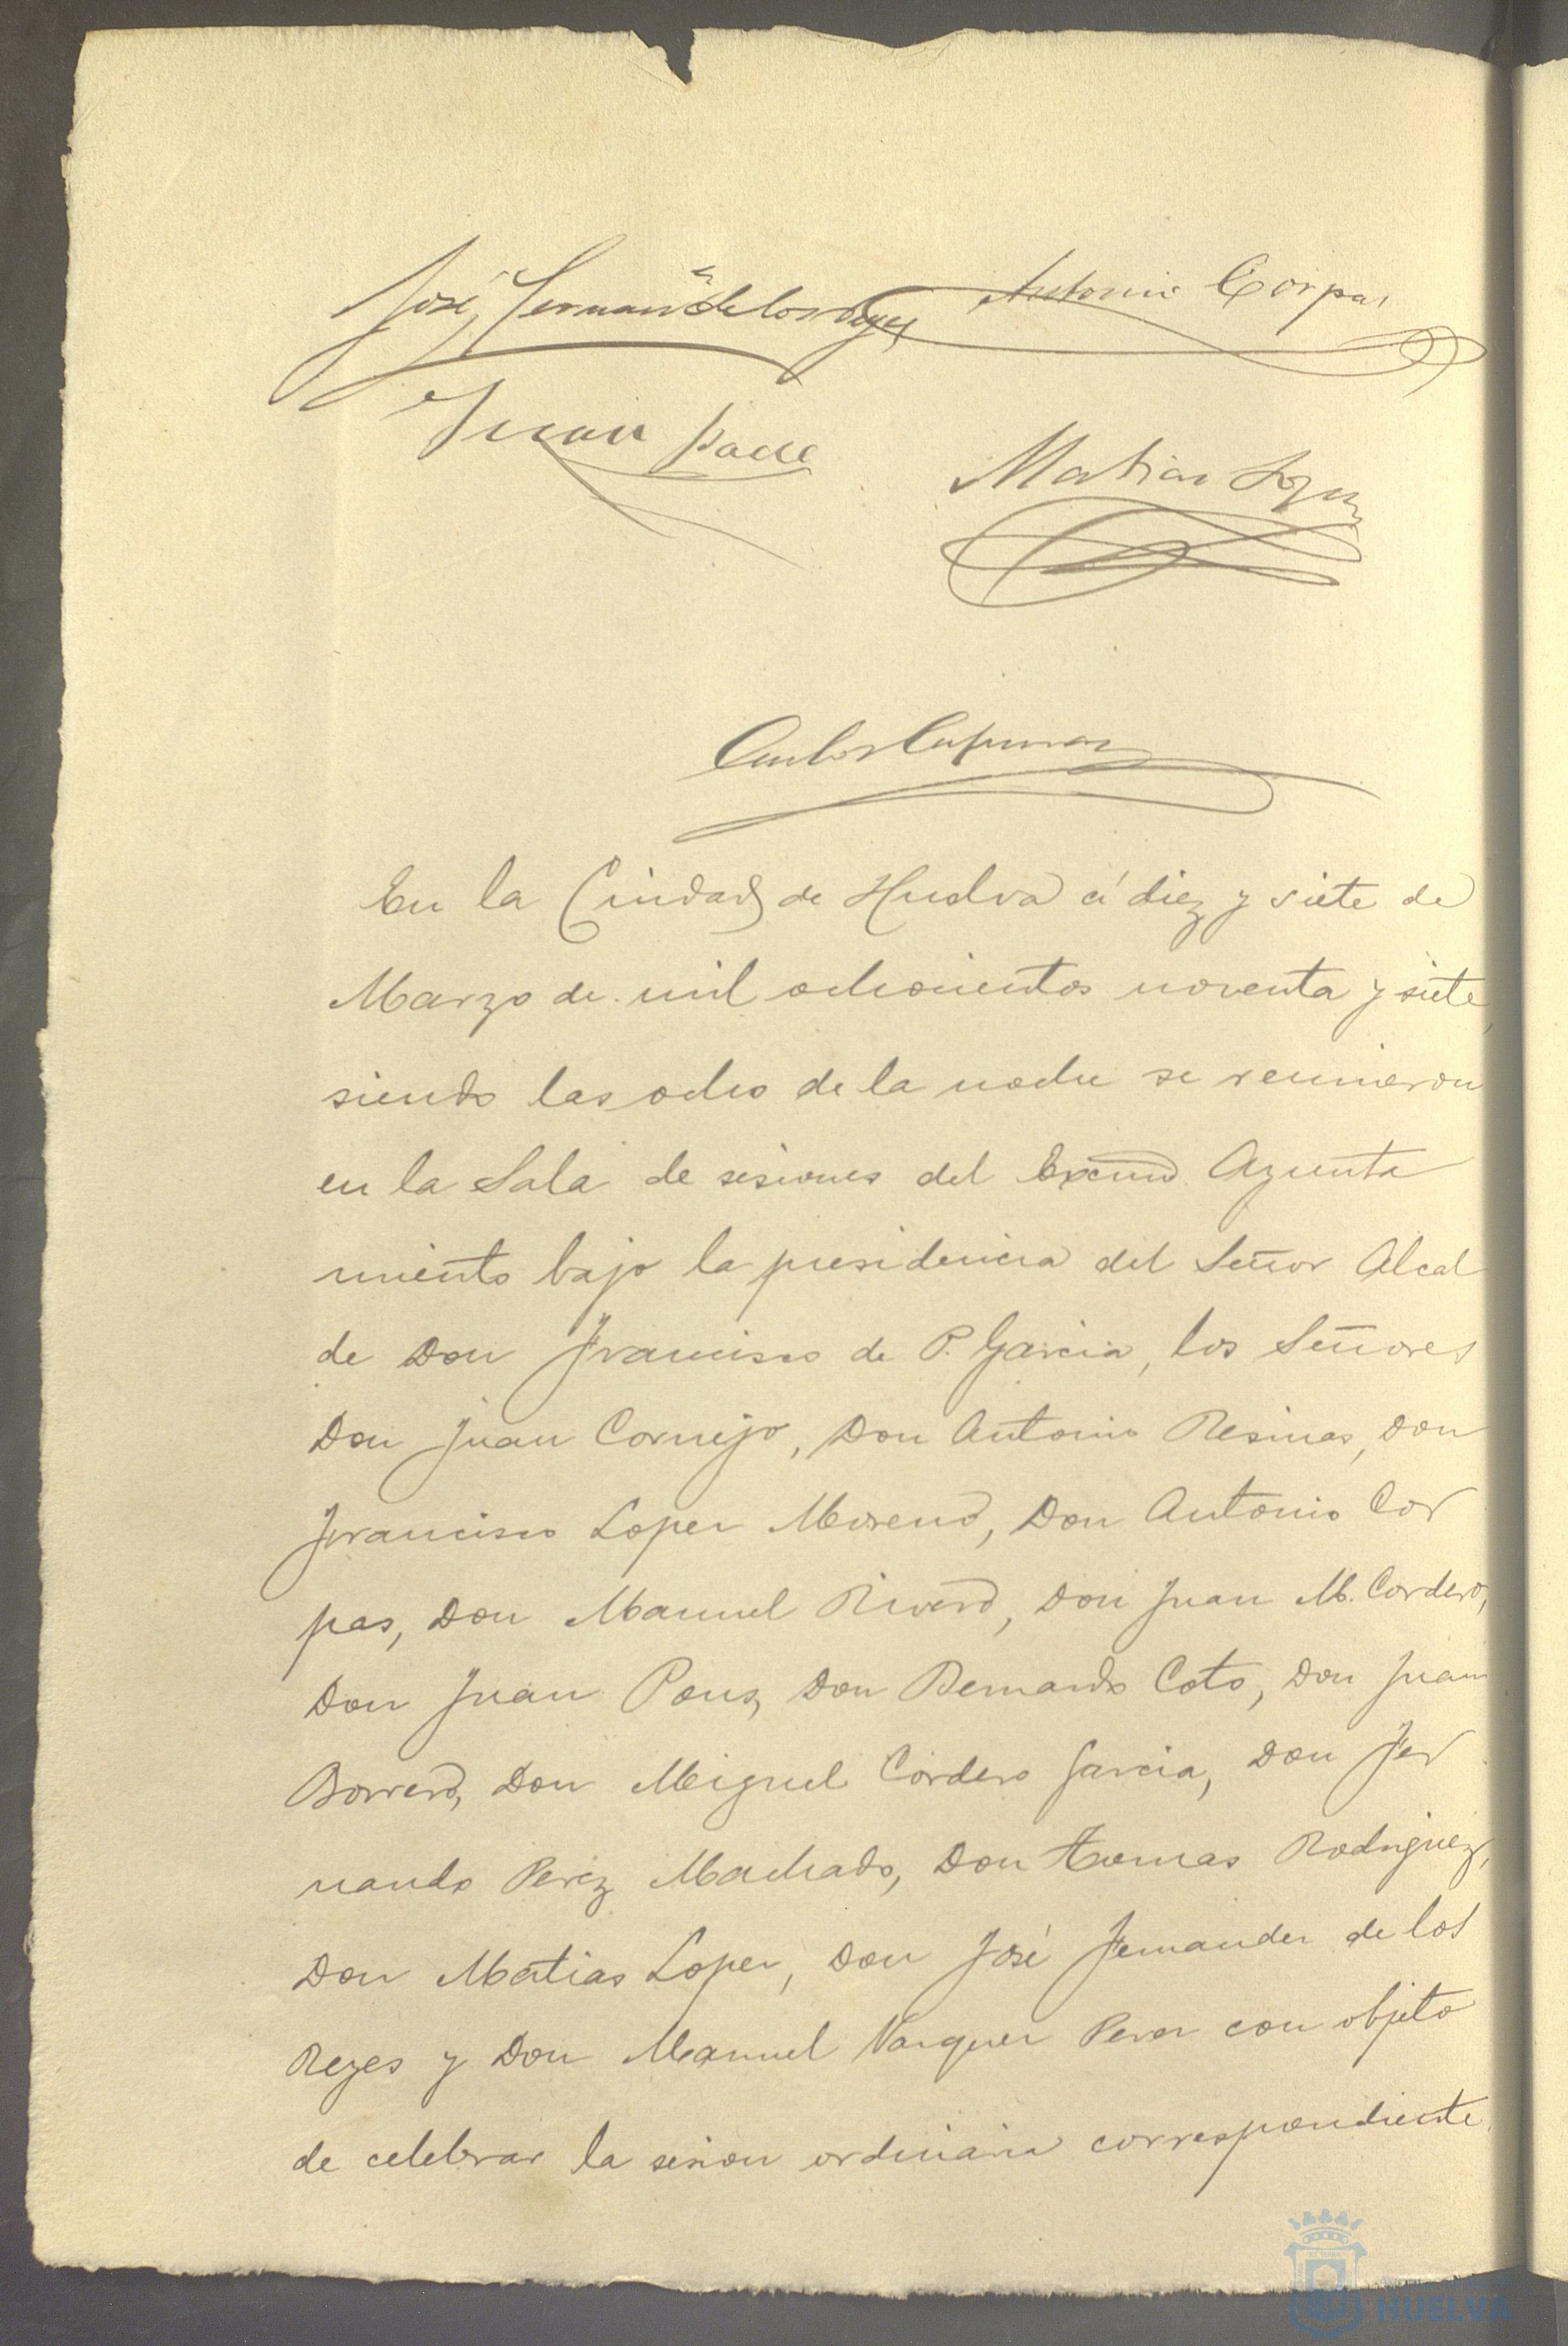 José Fernandz de los Reyes Antonio Corpas
Juan
Matias Lopez
Carlos
En la Ciudad de Huelva á diez y siete de
Marzo de mil ochocientos noventa y siete,
siendo las ocho de la noche se reunieron
en la Sala de sesiones del Excmo Ayunta
miento bajo la presidencia del Señor Alcal
de Don Francisco de P. Garcia, los Señores
Don Juan Cornejo, Don Antonio Resinas, Don
Francisco Lopez Moreno, Don Antonio Cor
pas, Don Manuel Rivero, Don Juan M. Cordero,
Don Juan Pons, Don Bernardo Coto, Don Juan
Borrero, Don Miguel Cordero Garcia, Don Fer
nando Perez Machado, Don Tomas Rodriguez,
Don Matias Lopez, Don José Fernandez de los
Reyes y Don Manuel Vazquez Perez con objeto
de celebrar la sesion ordinaria correspondiente.
HUELVA